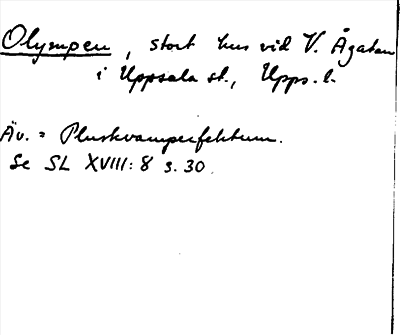 Olympen, stort hus vid V. Ågatan
i Uppsala st., Upps. l.
Äv. = Pluskvamperfektum.
Se SL XVIII: 8 s. 30.